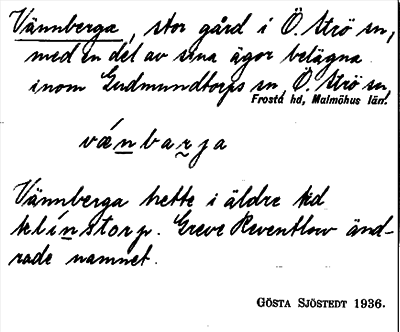 Vännberga, stor gård i Ö. Strö sn,
med en del av sina ägor belägna
inom Gudmundtorps sn, Ö. Strö sn,
Frosta hd, Malmöhus län.
vǽnbarja
Vännberga hette i äldre tid
klínstorp. Greve Reventlow änd-
rade namnet.
GÖSTA SJÖSTEDT 1936.